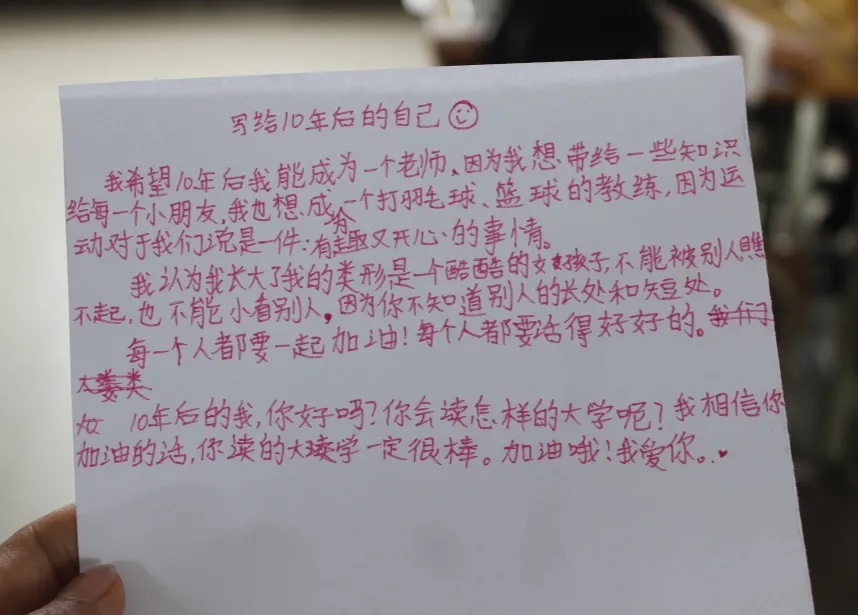 写给10年后的自己
我希望10年后我能成为一个老师,因为我想带给一些知识
给每一个小朋友,我也想成一个打羽毛球、篮球的教练,因为运
动对于我们说是一件:有趣又开心的事情。
我认为我长大了我的类形是一个酷酷的女孩子,不能被别人瞧
不起,也不能小看别人,因为你不知道别人的长处和短处。
每一个人都要一起加油!每个人都要活得好好的。我们
大类
如 10年后的我,你好吗?你会读怎样的大学呢?我相信你
加油的话,你读的大学一定很棒。加油哦!我爱你。